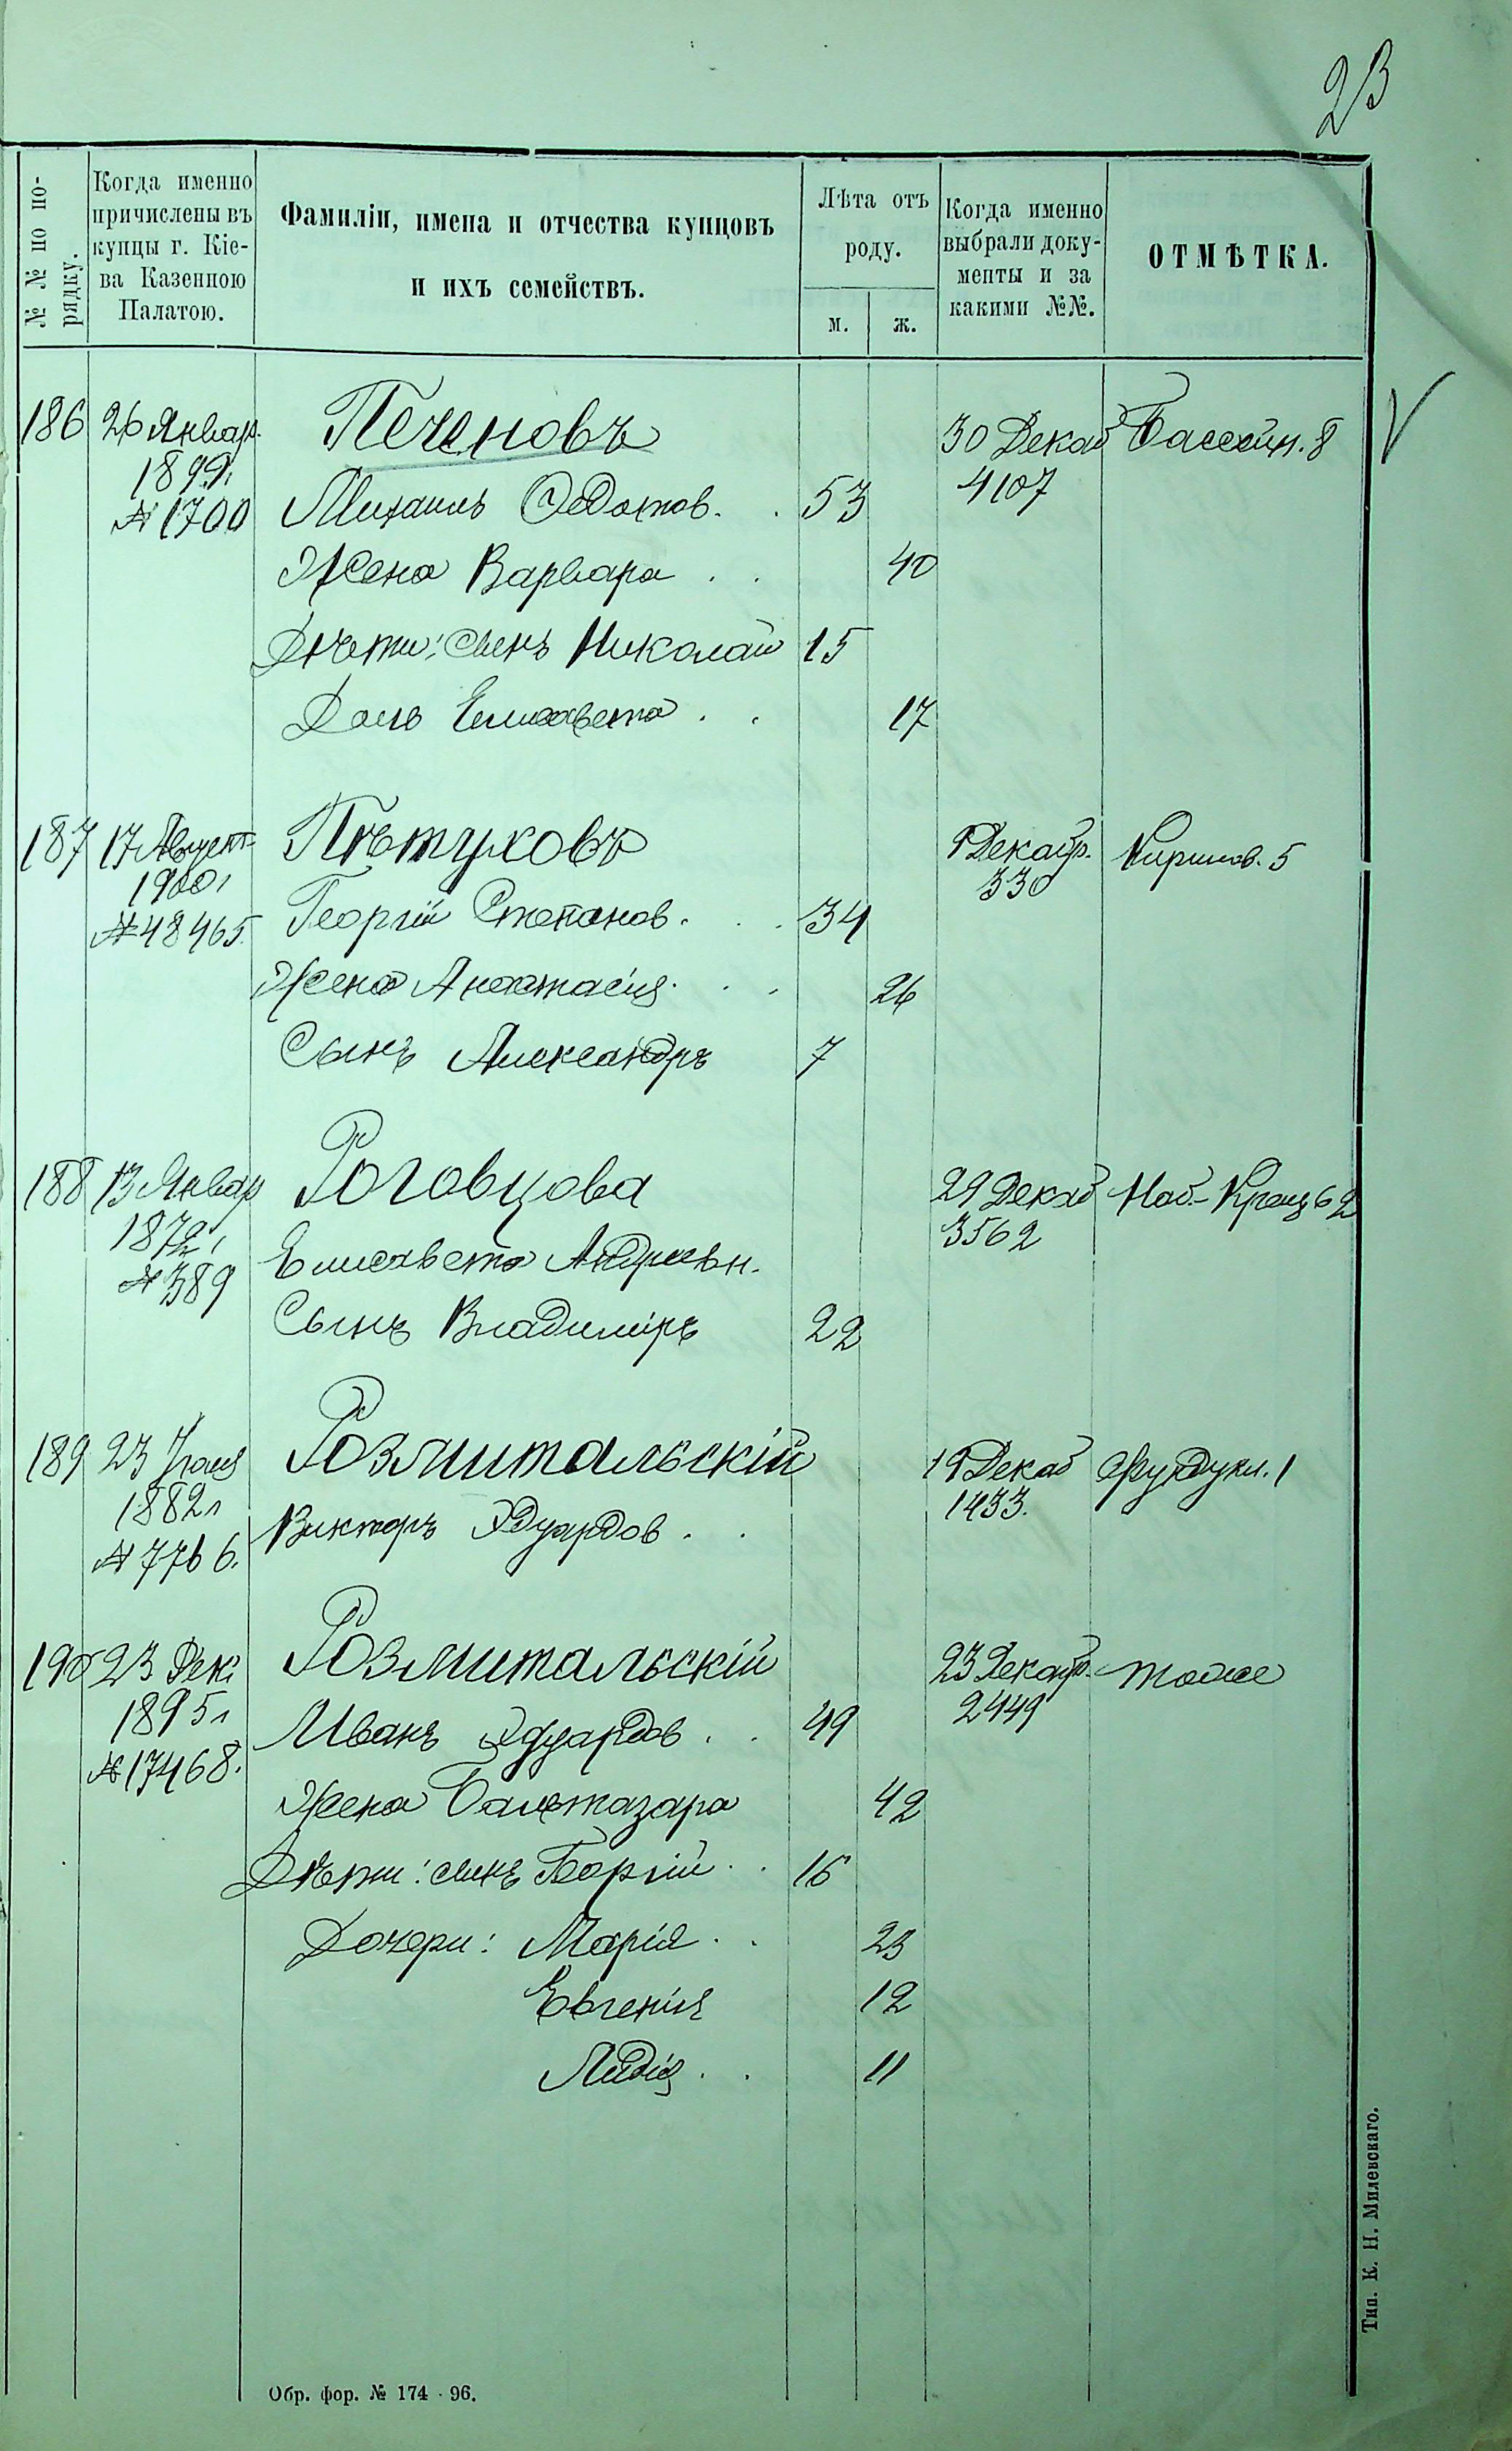 23
№ № по по-
рядку.
Когда именно
причислены въ
купцы г. Кіе-
ва Казенною
Палатою.
Фамиліи, имена и отчества купцовъ
и ихъ семействъ.
Лѣта отъ
роду.
м. ж.
Когда именно
выбрали доку-
менты и за
какими №№.
ОТМѢТКА.
186 26 Январ. Печеновъ 30 Декаб Бассейн. 8
1899 г. 4107
№ 1700 Михаилъ Федотов. 53
Жена Варвара 40
Дѣти: сынъ Николай 15
Дочь Елисавета 17
187 17 Август Пѣтуховъ 9 Декабр. Кирилов. 5
1900 г 330
№ 48465. Георгій Степанов. 34
Жена Анастасія 26
Сынъ Александръ 7
188 13 Январ Роговцова 29 Декаб Наб-Крещ 62
1872 г 3562
№ 389 Елисавета Андреевн.
Сынъ Владиміръ 22
189 23 Розмитальскій 19 Декаб Фундукл. 1
1882 г 1433.
№ 7766. Викторъ Эдуардов.
190 23 Дек. Розмитальскій 23 Декабр. тоже
1895 г 2449
№ 17468. Иванъ Эдуардов 49
Жена Балтазара 42
Дѣти: сынъ Георгій 16
Дочери: Марія 23
Евгенія 12
Лидія 11
Обр. фор. № 174 - 96.
Тип. К. Н. Милевскаго.